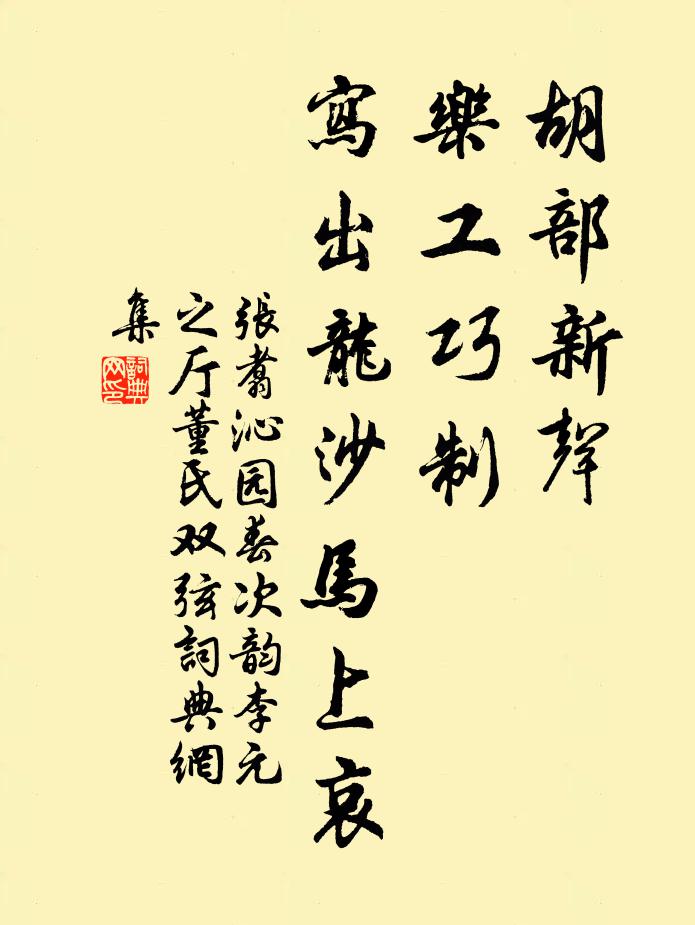 胡部新聲
樂工巧制
寫出龍沙馬上哀
張翥沁园春次韵李元
之厅董氏双弦詞典網
集
詞典
网印